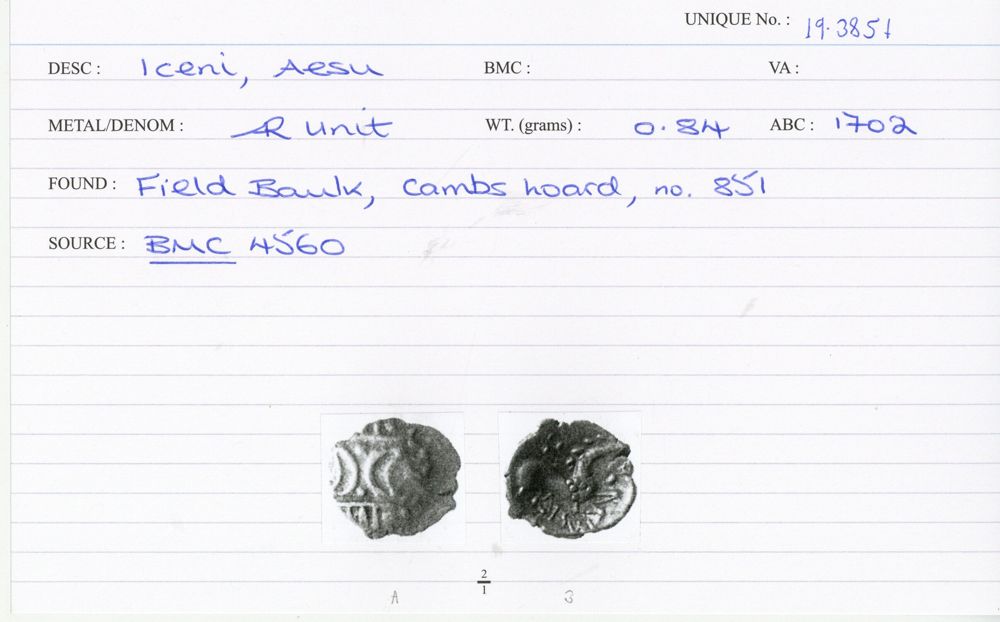 UNIQUE No. : 19.3851
DESC : Iceni, Aesu BMC : VA :
METAL/DENOM : AR Unit WT. (grams) : 0.84 ABC : 1702
FOUND : Field Baulk, Cambs hoard, no. 851
SOURCE : BMC 4560
2
1
A B